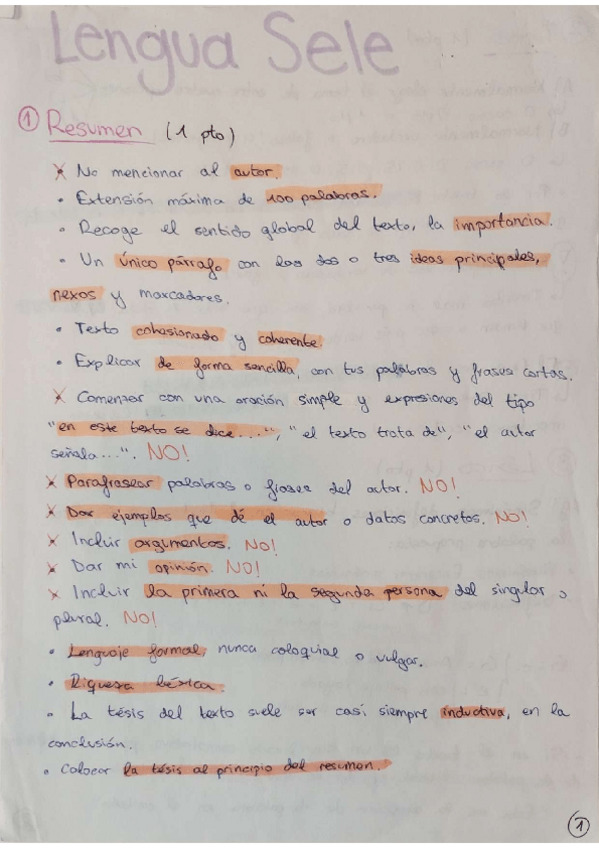 Lengua Sele
① Resumen (1 pto)
x No mencionar al autor.
• Extensión máxima de 100 palabras.
• Recoge el sentido global del texto, la importancia.
• Un único párrafo con las dos o tres ideas principales,
nexos y marcadores.
• Texto cohesionado y coherente.
• Explicar de forma sencilla, con tus palabras y frases cortas.
x Comenzar con una oración simple y expresiones del tipo
"en este texto se dice...", "el texto trata de", "el autor
señala...". NO!
x Parafrasear palabras o frases del autor. NO!
x Dar ejemplos que dé el autor o datos concretos. NO!
x Incluir argumentos. NO!
x Dar mi opinión. NO!
x Incluir la primera ni la segunda persona del singular o
plural. NO!
• Lenguaje formal, nunca coloquial o vulgar.
• Riqueza léxica.
• La tésis del texto suele ser casi siempre inductiva, en la
conclusión.
• Colocar la tésis al principio del resumen.
1